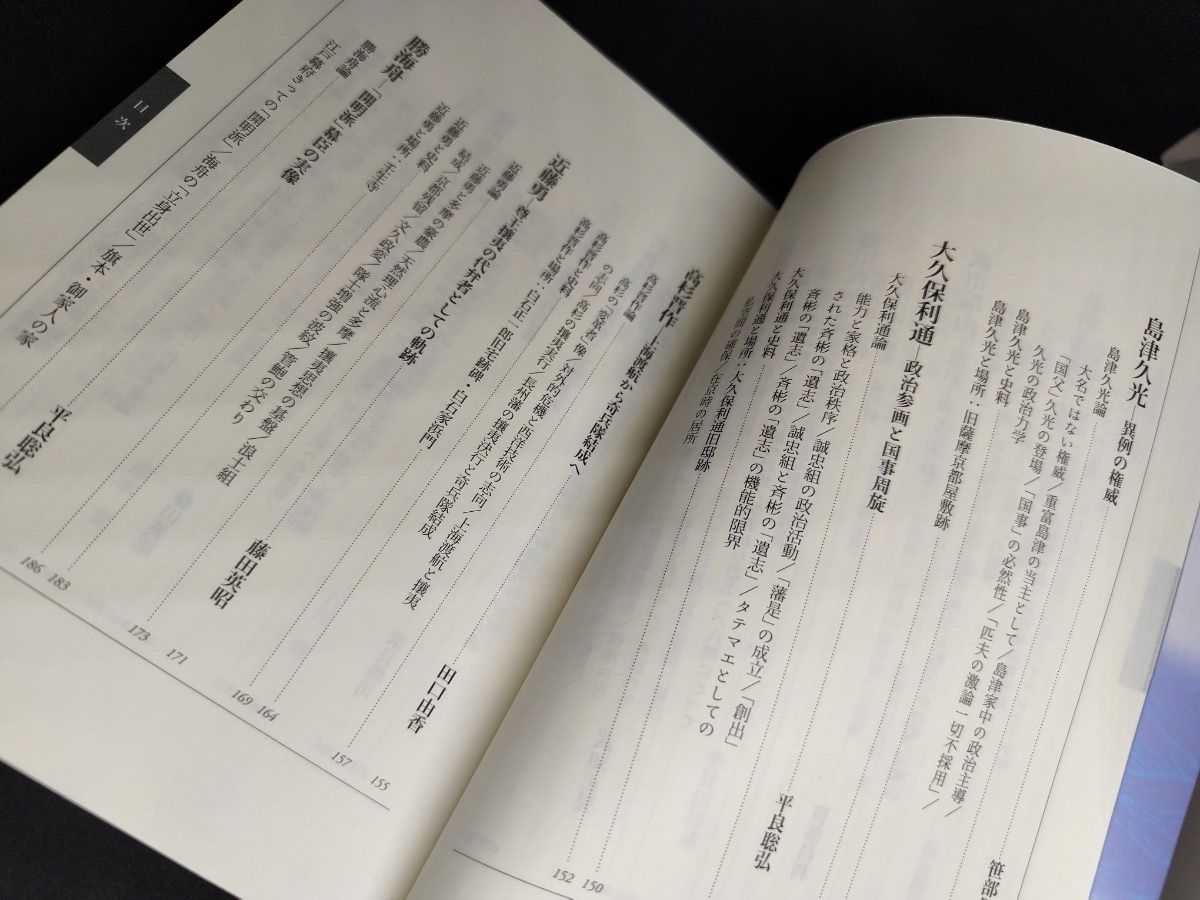 島津久光―異例の権威
笹部
島津久光論
大名ではない権威/重富島津の当主として/島津家中の政治主導/
「国父」久光の登場/「国事」の必然性/「匹夫の激論一切不採用」/
久光の政治力学
島津久光と史料
島津久光と場所:旧薩摩京都屋敷跡
大久保利通―政治参画と国事周旋
平良聡弘
大久保利通論
能力と家格と政治秩序/誠忠組の政治活動/「藩是」の成立/「創出」
された斉彬の「遺志」/誠忠組と斉彬の「遺志」/タテマエとしての
斉彬の「遺志」/斉彬の「遺志」の機能的限界
大久保利通と史料
150
大久保利通と場所:大久保利通旧邸跡
152
私空間の確保/在京時の居所
目次
高杉晋作―上海渡航から奇兵隊結成へ
田口由香
155
高杉晋作論
157
高杉の「変革者」像/対外的危機と西洋技術の志向/上海渡航と攘夷
の志向/高杉の攘夷実行/長州藩の攘夷決行と奇兵隊結成
高杉晋作と史料
164
高杉晋作と場所:白石正一郎旧宅跡碑・白石家浜門
169
近藤勇―尊王攘夷の代弁者としての軌跡
藤田英昭
171
近藤勇論
173
近藤勇と多摩の豪農/天然理心流と多摩/攘夷思想の基盤/浪士組
結成/京都残留/文久政変/隊士増強の波紋/管鮑の交わり
近藤勇と史料
183
近藤勇と場所:壬生寺
186
勝海舟―「開明派」幕臣の実像
平良聡弘
勝海舟論
江戸幕府きっての「開明派」/海舟の「立身出世」/旗本・御家人の家